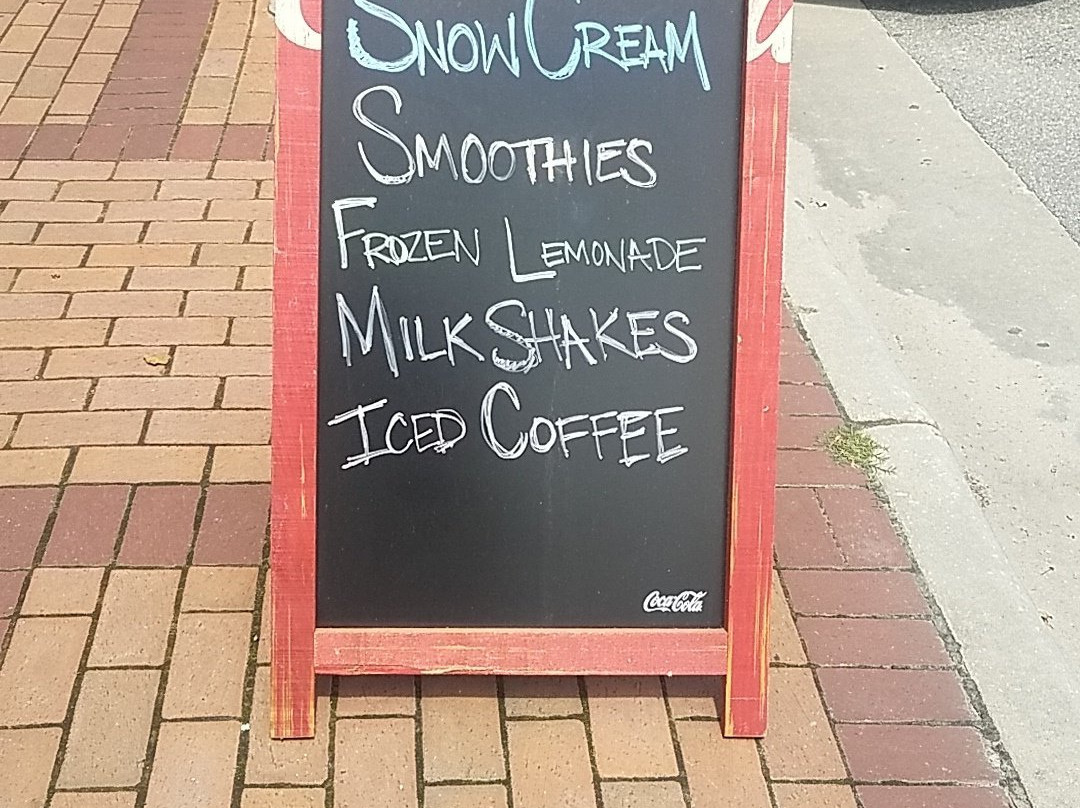 SNOW CREAM
SMOOTHIES
FROZEN LEMONADE
MILKSHAKES
ICED COFFEE
Coca-Cola